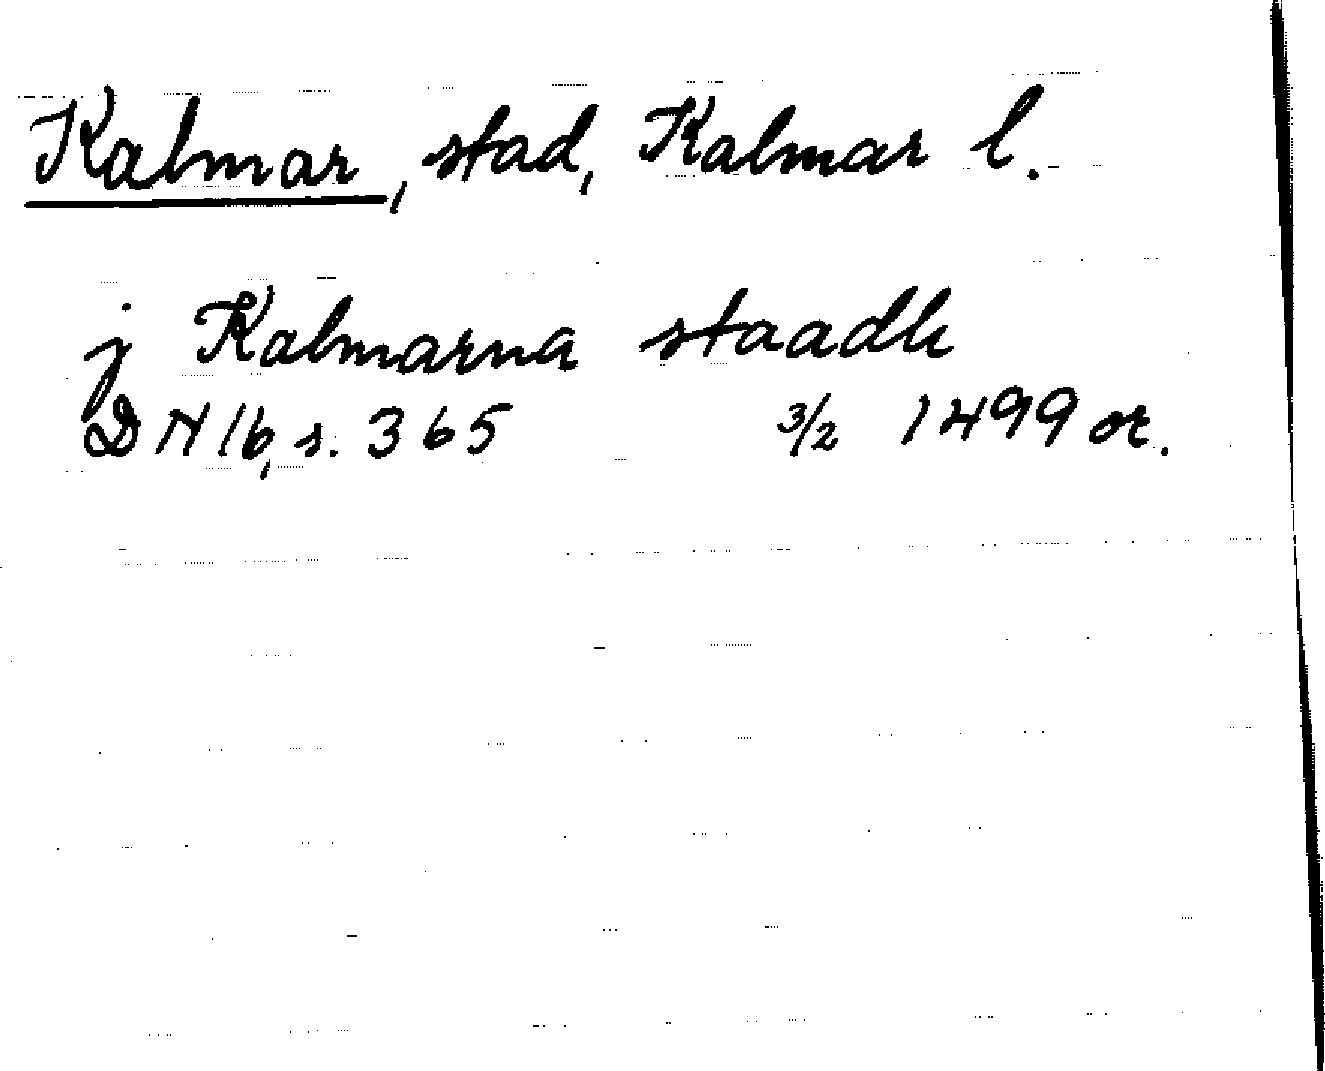 Kalmar, stad, Kalmar l.
j Kalmarna staadh
DN 16, s. 365 3/2 1499 or.